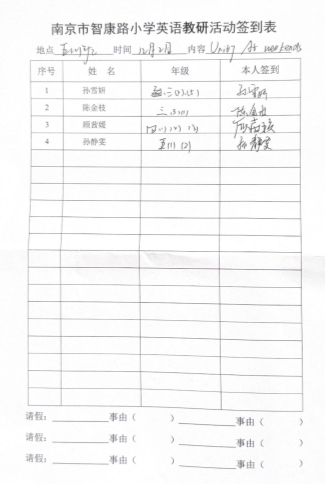 南京市智康路小学英语教研活动签到表
地点 五(1)班 时间 12月2日 内容 Unit7 At weekends
序号 姓 名 年级 本人签到
1 孙雪妍 孙雪妍
2 陈金枝 三 陈金枝
3 顾茵媛 四(1)(2)(3)
4 孙静雯 五(1)(2) 孙静雯
请假: 事由( ) 事由( )
请假: 事由( ) 事由( )
请假: 事由( ) 事由( )